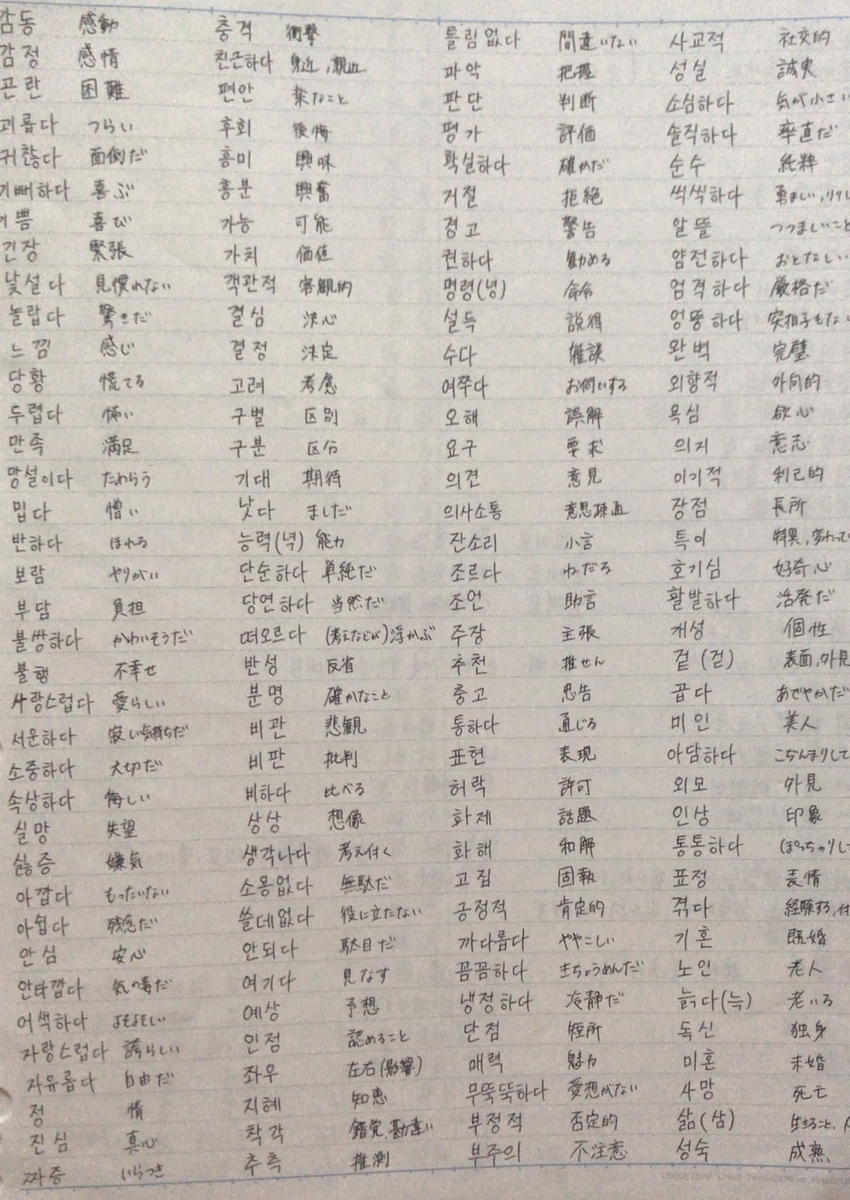 감동 感動
감정 感情
곤란 困難
괴롭다 つらい
귀찮다 面倒だ
기뻐하다 喜ぶ
기쁨 喜び
긴장 緊張
낯설다 見慣れない
놀랍다 驚きだ
느낌 感じ
당황 慌てる
두렵다 怖い
만족 満足
망설이다 ためらう
밉다 憎い
반하다 ほれる
보람 やりがい
부담 負担
불쌍하다 かわいそうだ
불행 不幸せ
사랑스럽다 愛らしい
서운하다 寂しい気持ちだ
소중하다 大切だ
속상하다 悔しい
실망 失望
싫증 嫌気
아깝다 もったいない
아쉽다 残念だ
안심 安心
안타깝다 気の毒だ
어색하다 よそよそしい
자랑스럽다 誇らしい
자유롭다 自由だ
정 情
진심 真心
짜증 いらつき
충격 衝撃
친근하다 身近,親近
편안 楽なこと
후회 後悔
흥미 興味
흥분 興奮
가능 可能
가치 価値
객관적 客観的
결심 決心
결정 決定
고려 考慮
구별 区別
구분 区分
기대 期待
낫다 ましだ
능력(녁) 能力
단순하다 単純だ
당연하다 当然だ
떠오르다 (考えなどが)浮かぶ
반성 反省
분명 確かなこと
비관 悲観
비판 批判
비하다 比べる
상상 想像
생각나다 考え付く
소용없다 無駄だ
쓸데없다 役に立たない
안되다 駄目だ
여기다 見なす
예상 予想
인정 認めること
좌우 左右(影響)
지혜 知恵
착각 錯覚,勘違い
추측 推測
틀림없다 間違いない
파악 把握
판단 判断
평가 評価
확실하다 確かだ
거절 拒絶
경고 警告
권하다 勧める
명령(녕) 命令
설득 説得
수다 雑談
여쭈다 お伺いする
오해 誤解
요구 要求
의견 意見
의사소통 意思疎通
잔소리 小言
조르다 ねだる
조언 助言
주장 主張
추천 推せん
충고 忠告
통하다 通じる
표현 表現
허락 許可
화제 話題
화해 和解
고집 固執
긍정적 肯定的
까다롭다 ややこしい
꼼꼼하다 きちょうめんだ
냉정하다 冷静だ
단점 短所
매력 魅力
무뚝뚝하다 愛想がない
부정적 否定的
부주의 不注意
사교적 社交的
성실 誠実
소심하다 気が小さい
솔직하다 率直だ
순수 純粋
씩씩하다 勇ましい,りりし
알뜰 つつましいこと
얌전하다 おとなしい
엄격하다 厳格だ
엉뚱하다 突拍子もない
완벽 完璧
외향적 外向的
욕심 欲心
의지 意志
이기적 利己的
장점 長所
특이 特異,変わって
호기심 好奇心
활발하다 活発だ
개성 個性
겉(걷) 表面,外見
곱다 あでやかだ
미인 美人
아담하다 こぢんまりして
외모 外見
인상 印象
통통하다 (ぽっちゃりして
표정 表情
겪다 経験する,付
기혼 既婚
노인 老人
늙다(늑) 老いる
독신 独身
미혼 未婚
사망 死亡
삶(삼) 生きること,
성숙 成熟